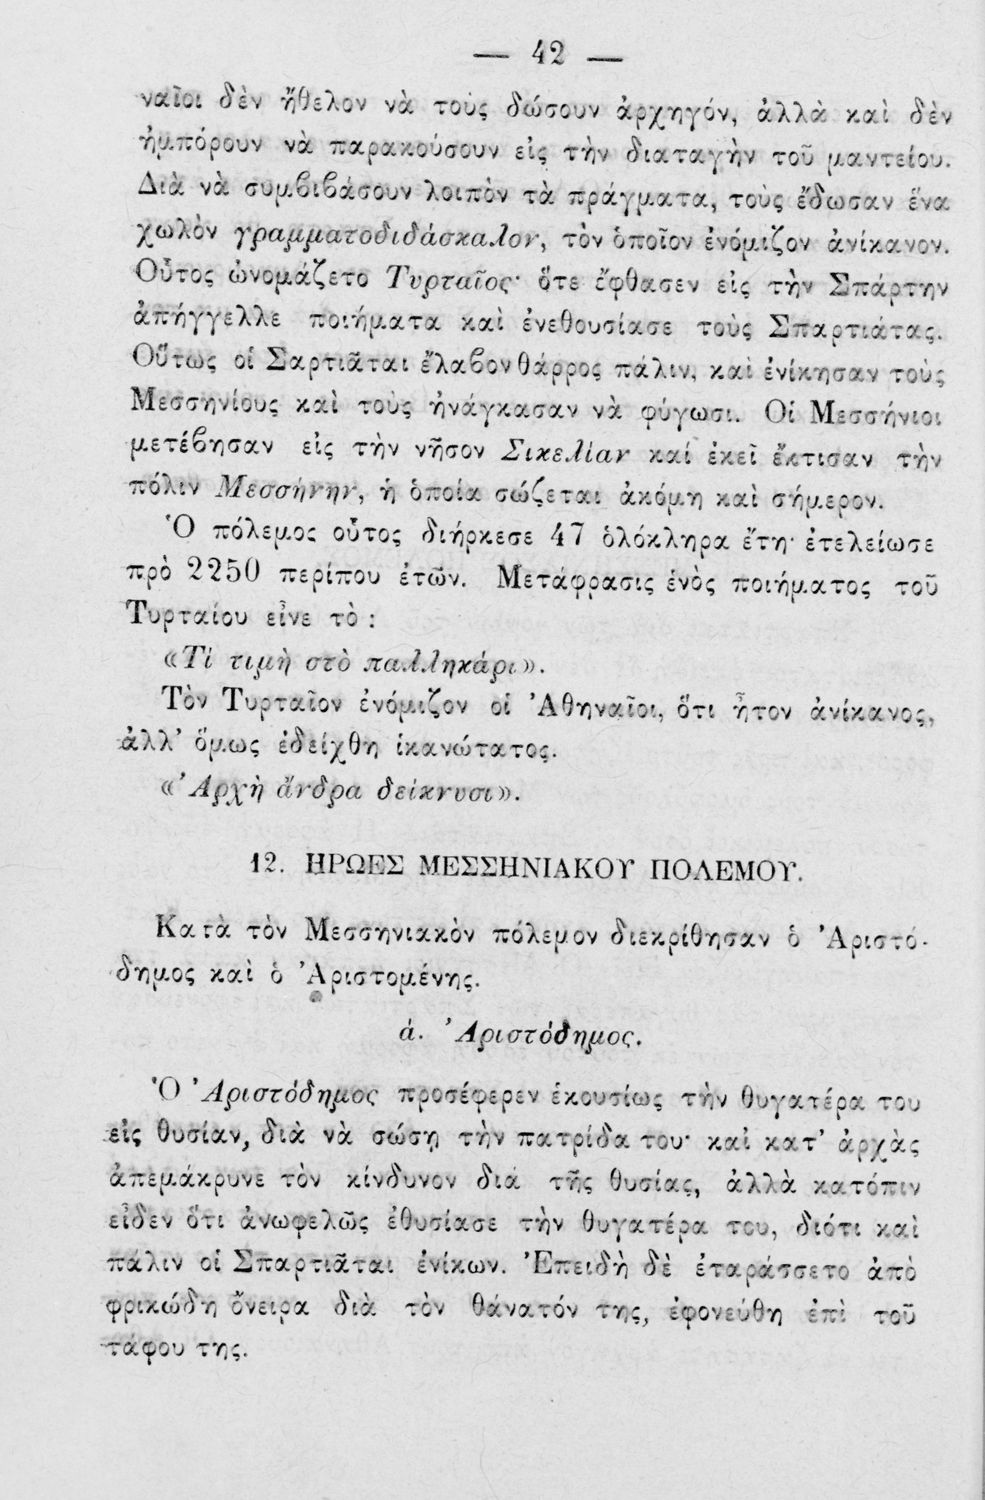 — 42 —
ναῖοι δὲν ἤθελον νὰ τοὺς δώσουν ἀρχηγόν, ἀλλὰ καὶ δὲν
ἠμπόρουν νὰ παρακούσουν εἰς τὴν διαταγὴν τοῦ μαντείου.
Διὰ νὰ συμβιβάσουν λοιπὸν τὰ πράγματα, τοὺς ἔδωσαν ἕνα
χωλὸν γραμματοδιδάσκαλον, τὸν ὁποῖον ἐνόμιζον ἀνίκανον.
Οὗτος ὠνομάζετο Τυρταῖος· ὅτε ἔφθασεν εἰς τὴν Σπάρτην
ἀπήγγελλε ποιήματα καὶ ἐνεθουσίασε τοὺς Σπαρτιάτας.
Οὕτως οἱ Σαρτιᾶται ἔλαβον θάρρος πάλιν, καὶ ἐνίκησαν τοὺς
Μεσσηνίους καὶ τοὺς ἠνάγκασαν νὰ φύγωσι. Οἱ Μεσσήνιοι
μετέβησαν εἰς τὴν νῆσον Σικελίαν καί ἐκεῖ ἔκτισαν τὴν
πόλιν Μεσσήνην, ἡ ὁποία σώζεται ἀκόμη καὶ σήμερον.
Ὁ πόλεμος οὗτος διήρκεσε 47 ὁλόκληρα ἔτη· ἐτελείωσε
πρὸ 2250 περίπου ἐτῶν. Μετάφρασις ἑνὸς ποιήματος τοῦ
Τυρταίου εἶνε τὸ :
«Τί τιμὴ στὸ παλληκάρι».
Τὸν Τυρταῖον ἐνόμιζον οἱ Ἀθηναῖοι, ὅτι ἦτον ἀνίκανος,
ἀλλ’ ὅμως ἐδείχθη ἱκανώτατος.
«Ἀρχὴ ἄνδρα δείκνυσι».
12. ΗΡΩΕΣ ΜΕΣΣΗΝΙΑΚΟΥ ΠΟΛΕΜΟΥ.
Κατὰ τὸν Μεσσηνιακὸν πόλεμον διεκρίθησαν ὁ Ἀριστό-
δημος καὶ ὁ Ἀριστομένης.
ά. Ἀριστόδημος.
Ὁ Ἀριστόδημος προσέφερεν ἑκουσίως τὴν θυγατέρα του
εἰς θυσίαν, διὰ νὰ σώσῃ τὴν πατρίδα του· καὶ κατ’ ἀρχὰς
ἀπεμάκρυνε τὸν κίνδυνον διὰ τῆς θυσίας, ἀλλὰ κατόπιν
εἶδεν ὅτι ἀνωφελῶς ἐθυσίασε τὴν θυγατέρα του, διότι καὶ
πάλιν οἱ Σπαρτιᾶται ἐνίκων. Ἐπειδὴ δὲ ἐταράσσετο ἀπὸ
φρικώδη ὄνειρα διὰ τὸν θάνατόν της, ἐφονεύθη ἐπὶ τοῦ
τάφου της.